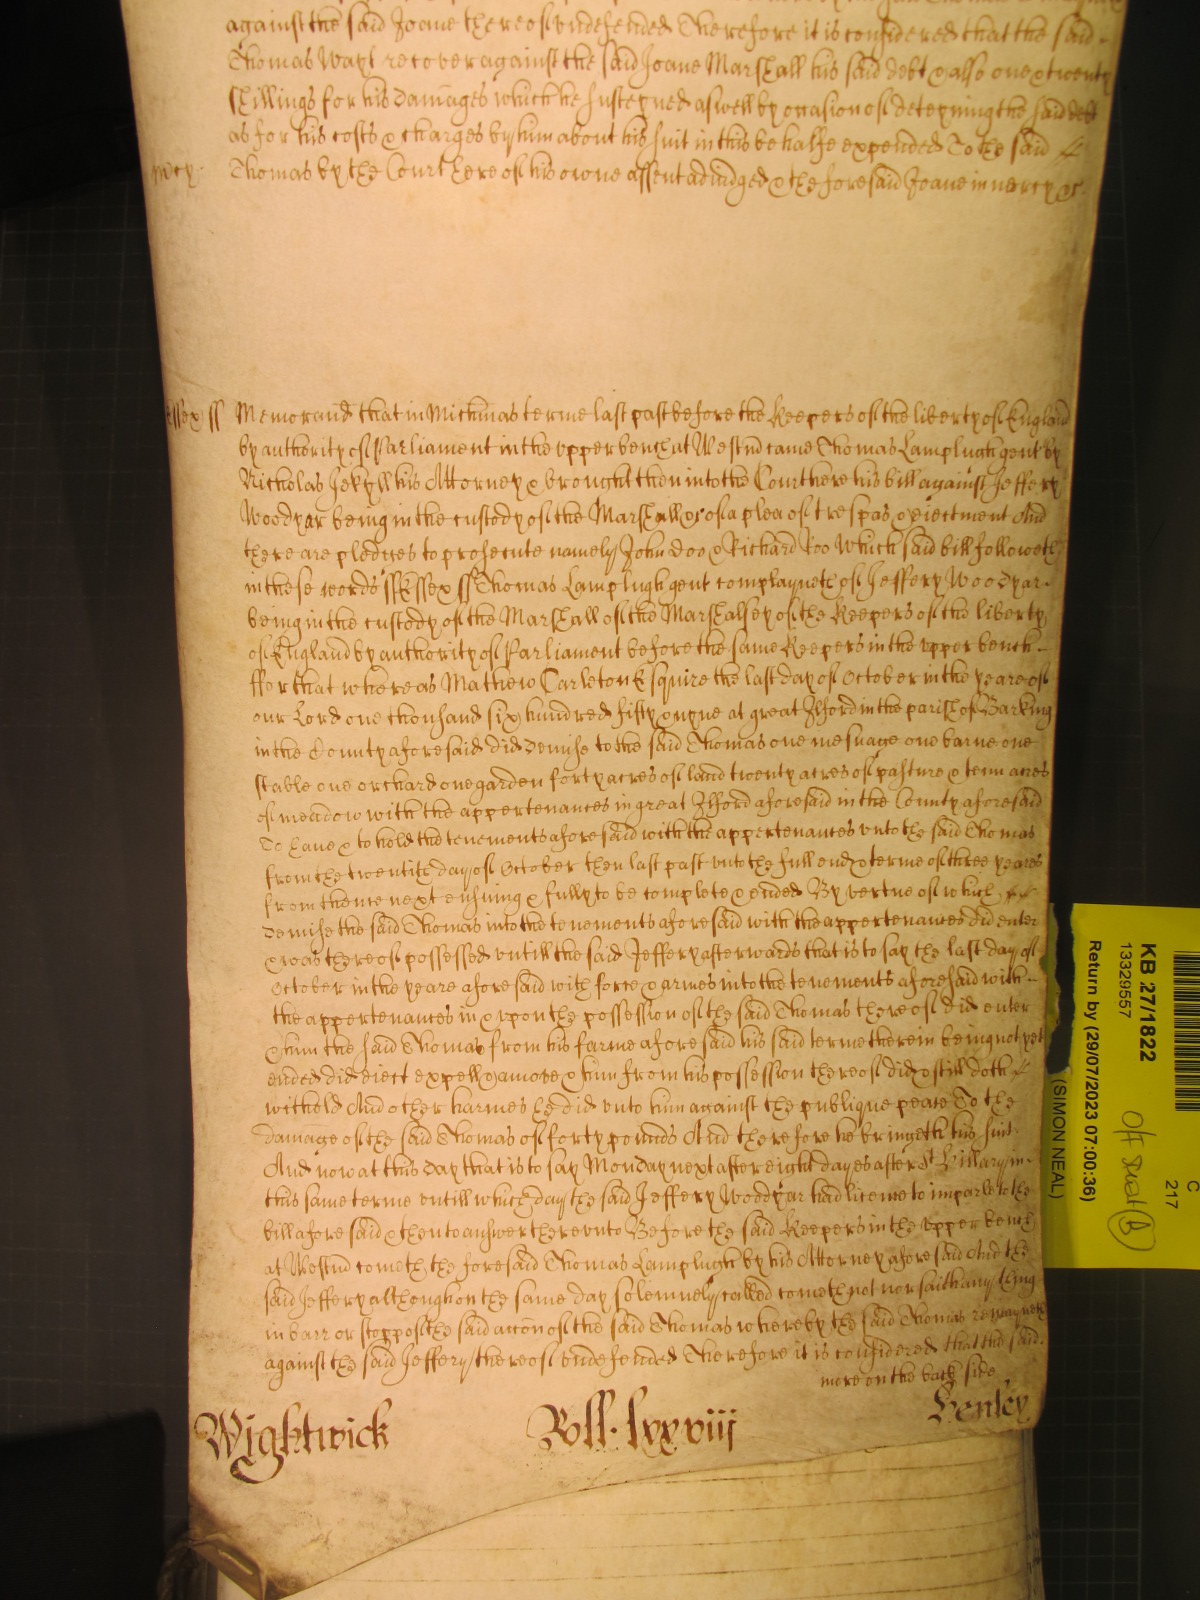 against the said Joane thereof undefended Therefore it is considered that the said
Thomas Wayt recover against the said Joane Marshall his said debt & also one & twenty
shillings for his damages which he susteyned aswell by occasion of deteyning the said debt
as for his costs & charges by him about his suit in this behalfe expended To the said
mercy Thomas by the Court here of his owne assent adiudged & the foresaid Joane in mercy &c
Essex ss Memorand that in Michmas terme last past before the Keepers of the liberty of England
by authority of Parliament in the upper bench at Westm came Thomas Lamplugh gent by
Nicholas Jekyll his Attorney & brought then into the Court here his bill against Jeffery
Woodyar being in the custody of the Marshall &c of a plea of trespas & eiectment And
there are pledges to prosecute namely John Doo & Richard Roo Which said bill followeth
in these words ss Essex ss Thomas Lamplugh gent complayneth of Jeffery Woodyar
being in the custody of the Marshall of the Marshalsey of the Keepers of the liberty
of England by authority of Parliament before the same Keepers in the upper bench
ffor that whereas Mathew Carleton Esquire the last day of October in the yeare of
our Lord one thousand six hundred fifty & nyne at great Ilford in the parish of Barking
in the County aforesaid did demise to the said Thomas one mesuage one barne one
stable one orchard one garden forty acres of land twenty acres of pasture & tenn acres
of meadow with the appertenances in great Ilford aforesaid in the County aforesaid
To have & to hold the tenements aforesaid with the appertenances unto the said Thomas
from the twentith day of October then last past unto the full end & terme of three yeares
from thence next ensuing & fully to be complete & ended By vertue of which
demise the said Thomas into the tenements aforesaid with the appertenances did enter
& was thereof possessed untill the said Jeffery afterwards that is to say the last day of
October in the yeare aforesaid with force & armes into the tenements aforesaid with
the appertenances in & upon the possession of the said Thomas thereof did enter
& him the said Thomas from his farme aforesaid his said terme therein being not yet
ended did eiect expell & amove & him from his possession thereof did & still doth
withold And other harmes he did unto him against the publique peace To the
damage of the said Thomas of forty pounds And therefore he bringeth his suit
And now at this day that is to say Monday next after eight dayes after St Hillary in
this same terme untill which day the said Jeffery Woodyar had licence to imparle to the
bill aforesaid & then to answer thereunto Before the said Keepers in the upper bench
at Westm cometh the foresaid Thomas Lamplugh by his Attorney aforesaid And the
said Jeffery although on the same day solemnely called cometh not nor saith any thing
in barr or stopp of the said accon of the said Thomas whereby the said Thomas remayneth
against the said Jeffery thereof undefended Therefore it is considered that the said
more on the back side
Wightwick Roll. lxxviii Henley
KB 27/1822
13329557
Return by (29/07/2023 07:00:36)
(SIMON NEAL)
C
217